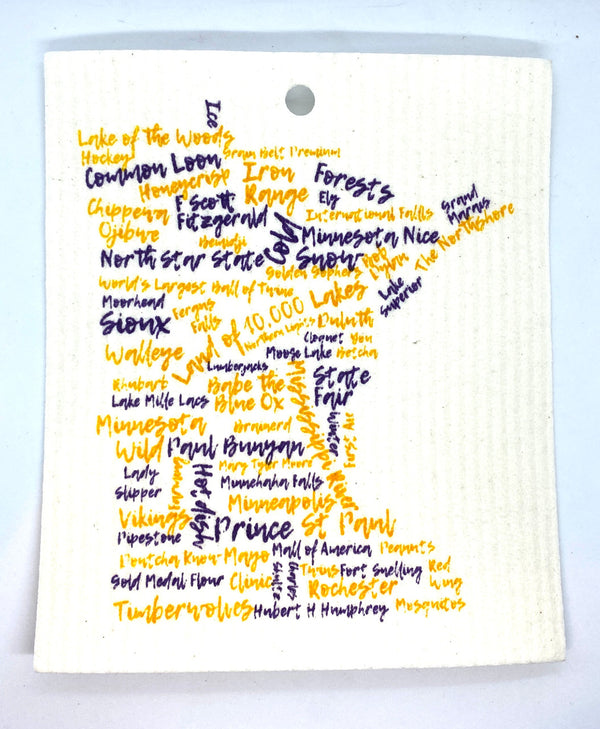 Ice
Lake of the Woods
Hockey
Grain Belt Premium
Common Loon
Iron
Range
Honeycrisp
Forests
Ely
Grand
Marais
Chippewa
F Scott
Fitzgerald
International Falls
Ojibwe
Bemidji
Cold
Minnesota Nice
The Northshore
North Star State
Snow
Bob
Dylan
Golden Gophers
World's Largest Ball of Twine
Lake
Superior
Moorhead
Fergus
Falls
Land of 10,000 Lakes
Sioux
Northern Lights
Duluth
Cloquet
You
Betcha
Walleye
Moose Lake
Lumberjacks
State
Fair
Rhubarb
Babe the
Blue Ox
Mississippi River
Lake Mille Lacs
Winter
First Ave
Minnesota
Wild
Brainerd
Paul Bunyan
Lady
Slipper
Hotdish
Mary Tyler Moore
Minnehaha Falls
Minneapolis
Vikings
Prince
St Paul
Pipestone
Dontcha Know
Mayo
Clinic
Mall of America
Peanuts
Gold Medal Flour
Charles
Shultz
Twins
Fort Snelling
Red
Wing
Rochester
Timberwolves
Hubert H Humphrey
Mosquitos